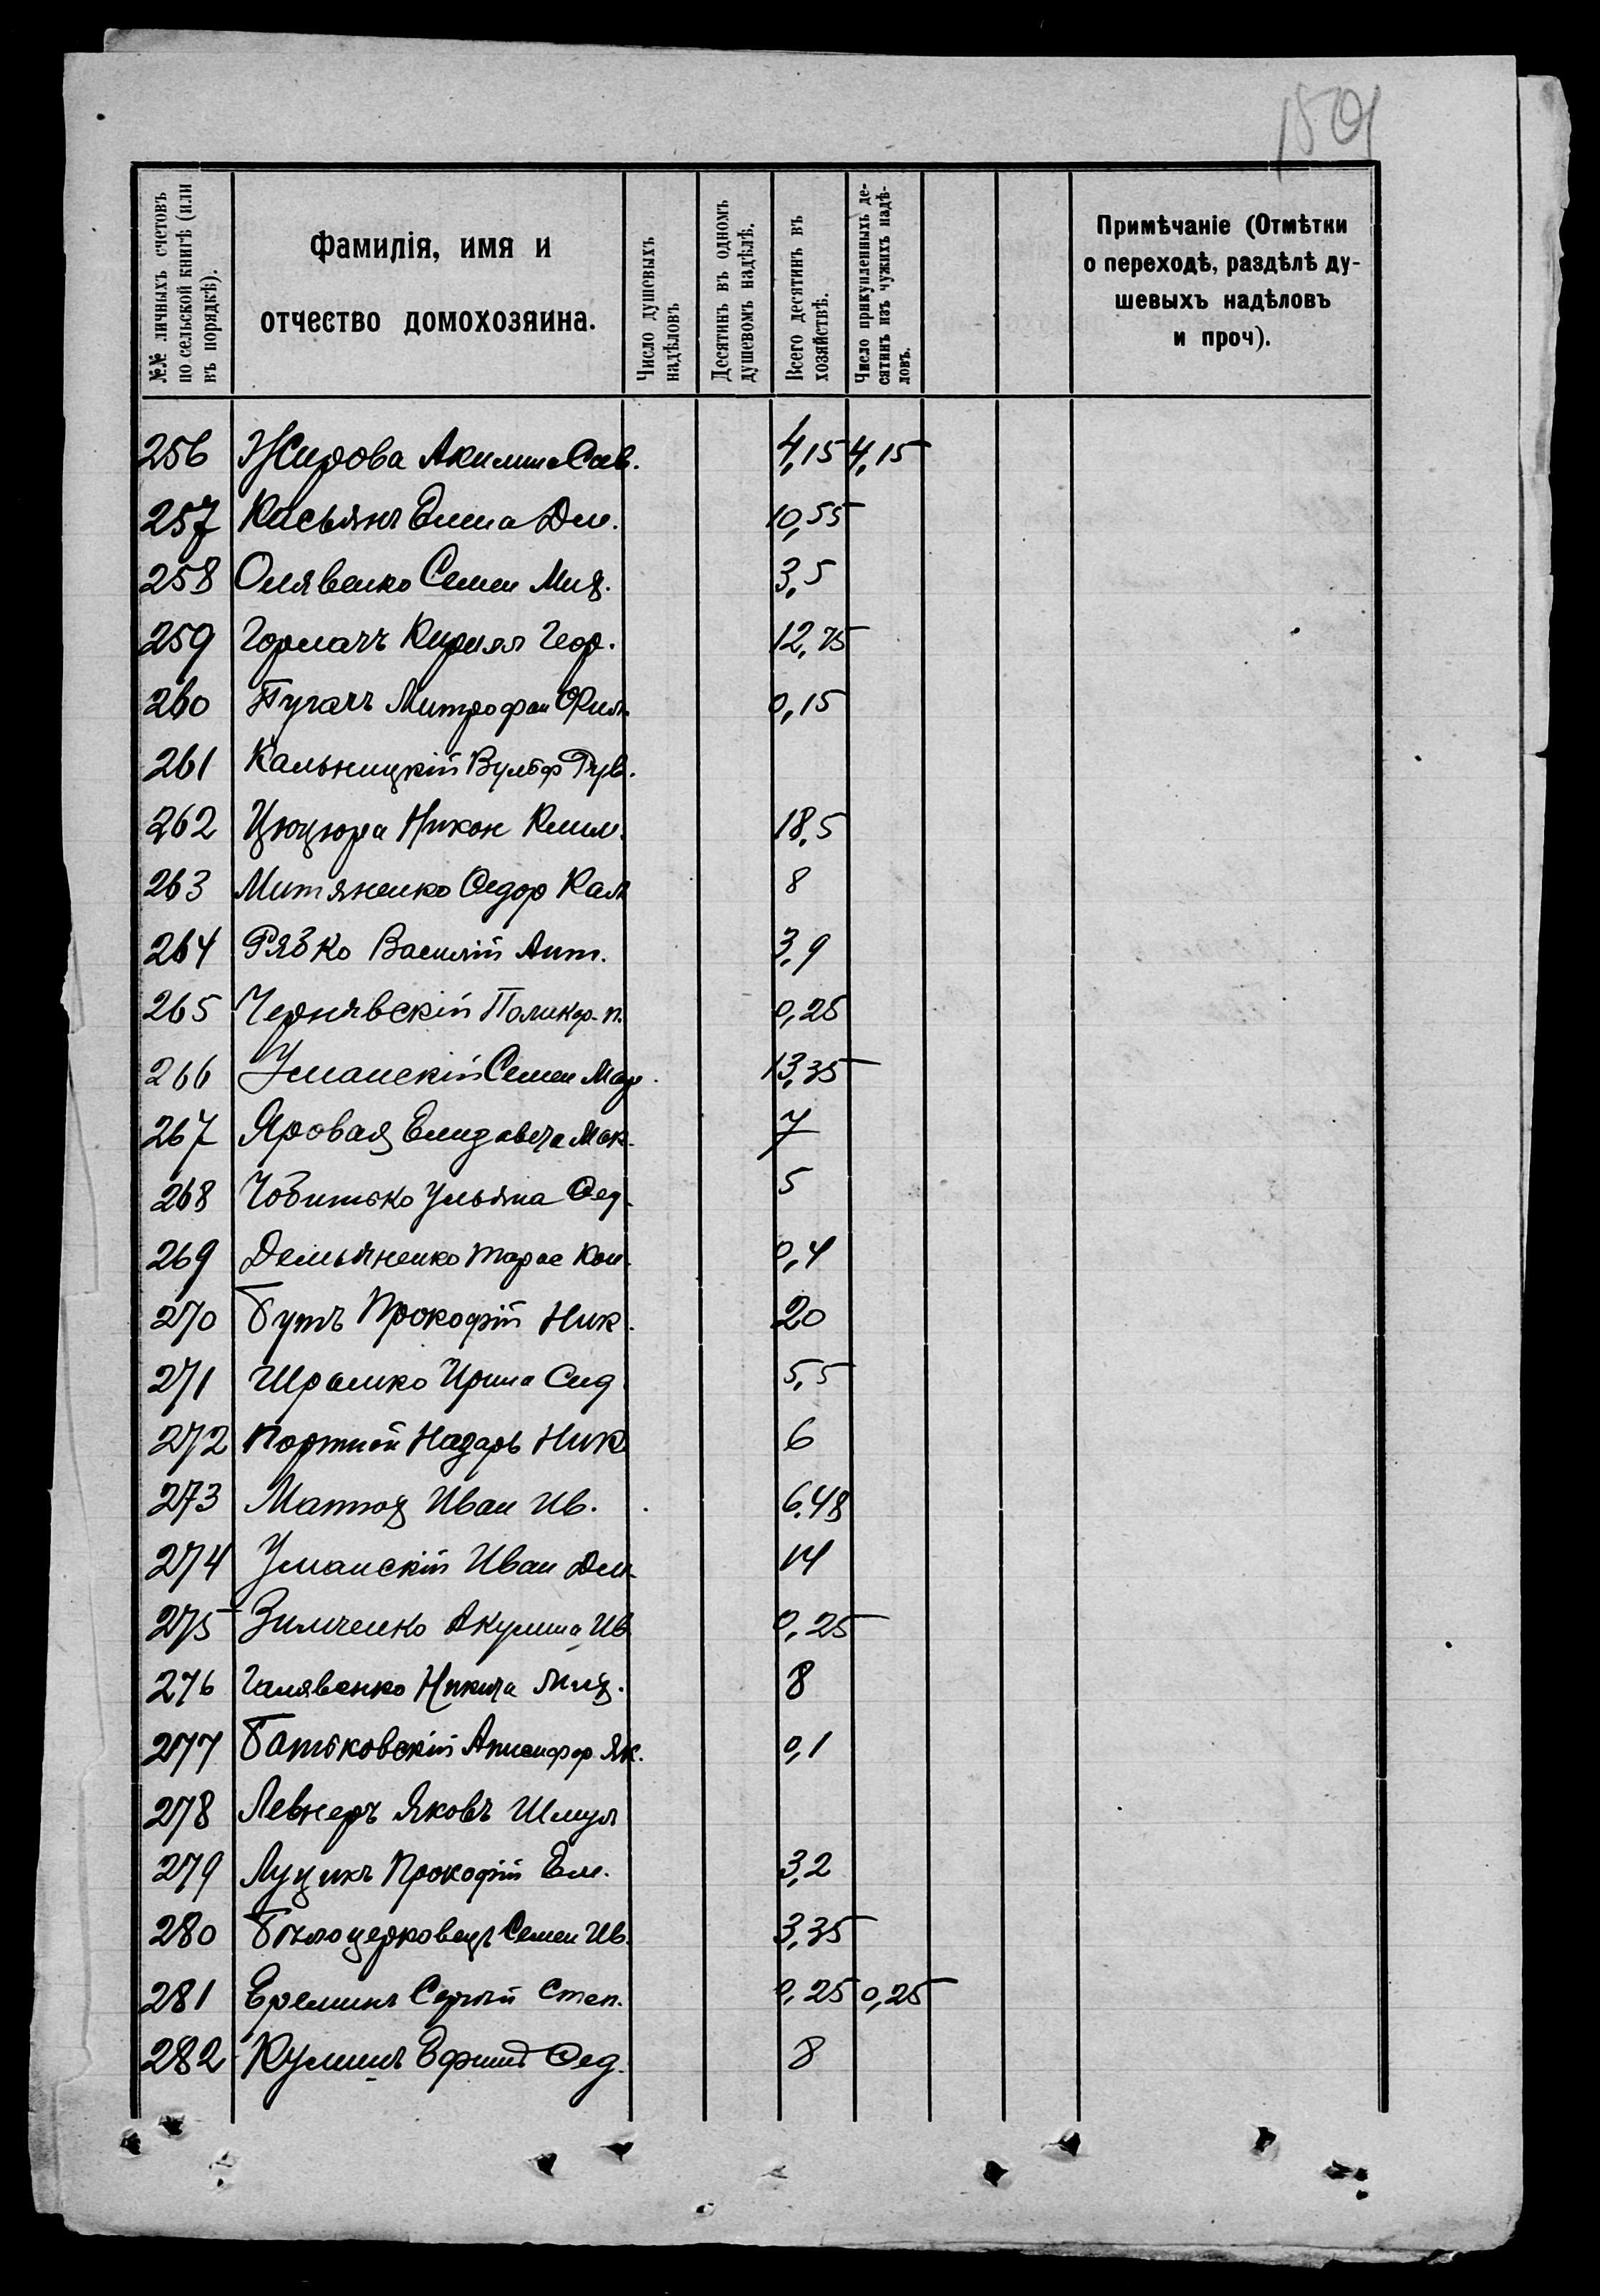 150
№№ личныхъ счетовъ по сельской книгѣ (или въ порядкѣ).
Фамилія, имя и отчество домохозяина.
Число душевыхъ надѣловъ
Десятинъ въ одномъ душевомъ надѣлѣ.
Всего десятинъ въ хозяйствѣ.
Число прикупленныхъ десятинъ изъ чужихъ надѣловъ.
Примѣчаніе (Отмѣтки о переходѣ, раздѣлѣ душевыхъ надѣловъ и проч).
256 Жирова Акилина Сав. 4,15 4,15
257 Касьянъ Елена Дм. 10,55
258 Олявенко Семен Мих. 3,5
259 Горкачъ Кирилл Геор. 12,75
260 Пугачъ Митрофан Фил. 0,15
261 Кальницкій Вульф Рув.
262 Цюцюра Никон Клим. 18,5
263 Митяненко Федор Кал 8
264 Рябко Василій Ант. 3,9
265 Чернявскій Поликар. п. 0,25
266 Уманскій Семен Мар. 13,35
267 Яровая Елизавета Мак. 7
268 Чобитько Ульяна Фед. 5
269 Демьяненко Тарас Кон. 0,4
270 Бутъ Прокофій Ник. 20
271 Шрамко Ирина Сид 5,5
272 Портной Назаръ Ник 6
273 Маттюх Иван Ив. 6,48
274 Уманскій Иван Дем. 14
275 Зимченко Акулина Ив 0,25
276 Галявенко Никита Мих. 8
277 Батьковскій Анисифор Як. 0,1
278 Левнеръ Яковъ Шмул
279 Луцикъ Прокофій Ем. 3,2
280 Бѣлоцерковецъ Семен Ив. 3,35
281 Ереминъ Сергѣй Степ. 0,25 0,25
282 Кулишъ Ефим Фед. 8